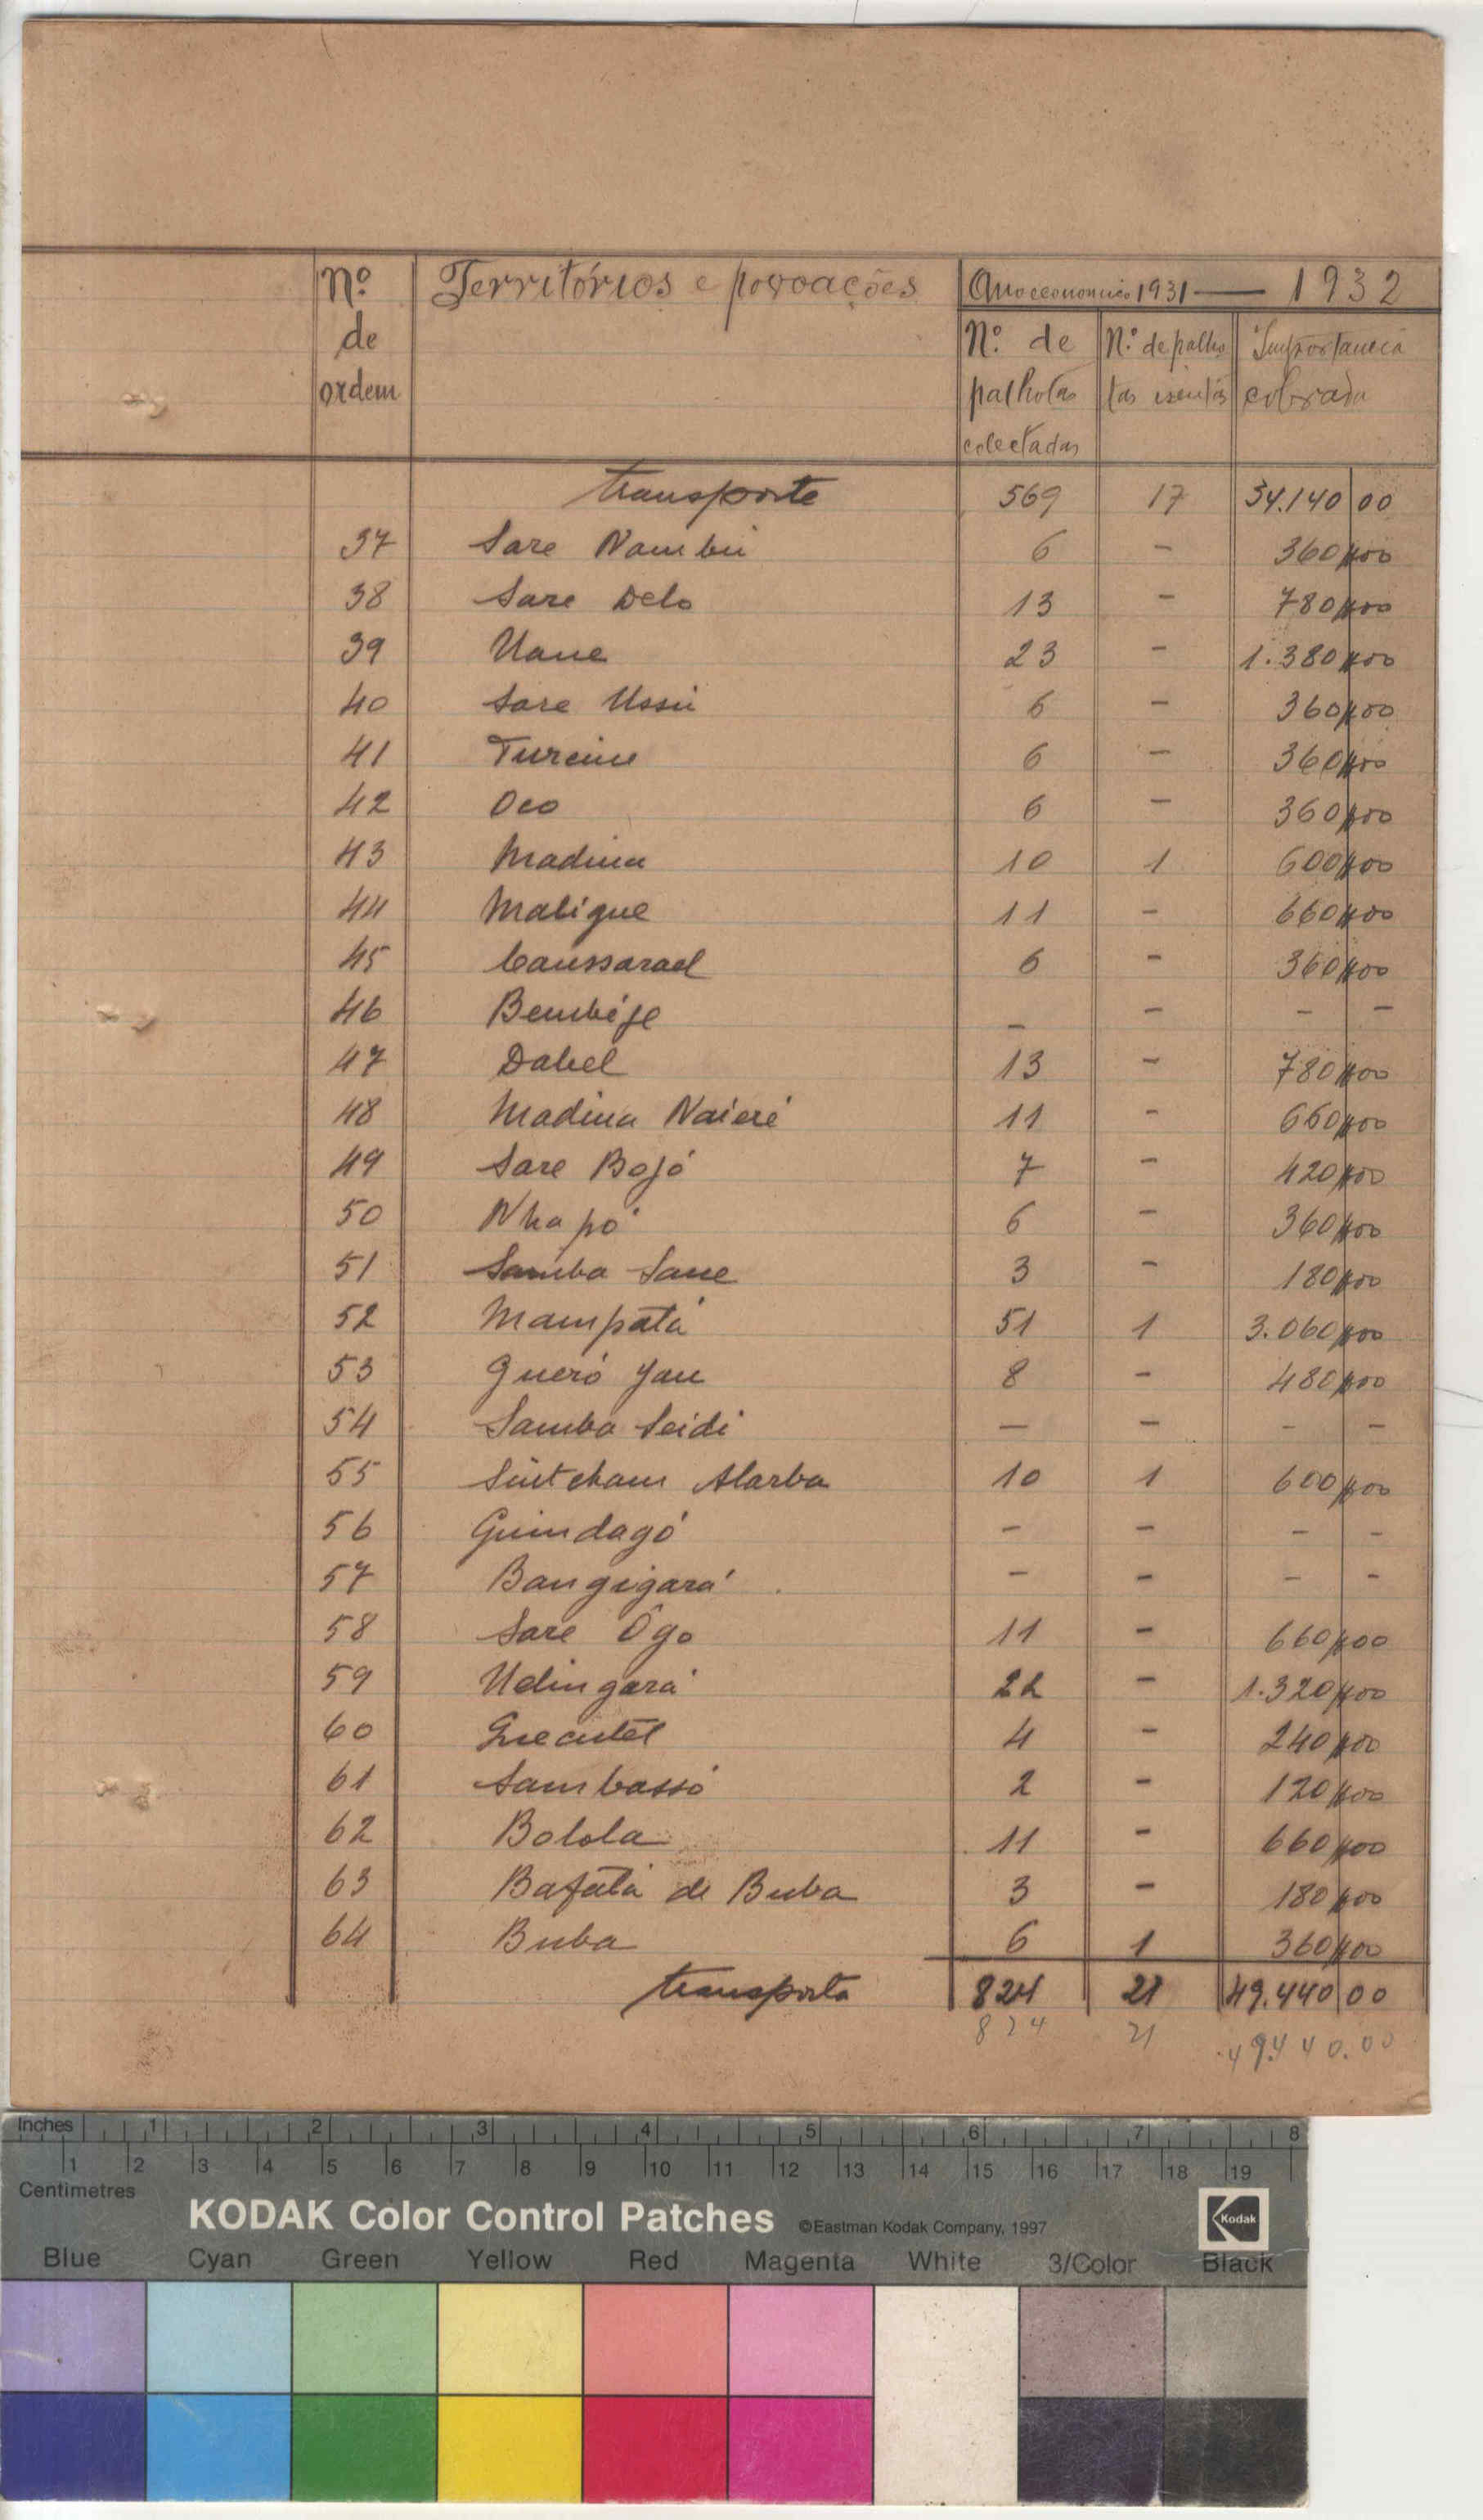 Nº de ordem Territórios e povoações Ano economico 1931 — 1932
Nº. de palhotas colectadas N.º de palhotas isentas Importancia cobrada
transporte 569 17 34.140 00
37 Sare Nambú 6 - 360$00
38 Sare Delo 13 - 780$00
39 Uane 23 - 1.380$00
40 Sare Ussú 6 - 360$00
41 6 - 360$00
42 Oco 6 - 360$00
43 Madina 10 1 600$00
44 Maligue 11 - 660$00
45 Caussarael 6 - 360$00
46 - - - -
47 Dabel 13 - 780$00
48 Madina Naieré 11 - 660$00
49 Sare Bojó 7 - 420$00
50 Nhapó 6 - 360$00
51 Samba Sane 3 - 180$00
52 Mampatá 51 1 3.060$00
53 Gueró Jau 8 - 480$00
54 Samba Seidi — - - -
55 Sintcham Alarba 10 1 600$00
56 Guindagó - - - -
57 Bangigará - - - -
58 Sare Ôgo 11 - 660$00
59 22 - 1.320$00
60 4 - 240$00
61 Sambassó 2 - 120$00
62 Bolola 11 - 660$00
63 Bafatá de Buba 3 - 180$00
64 Buba 6 1 360$00
transporta 824 21 49.440 00
824 21 49.440.00
Inches 1 2 3 4 5 6 7 8
1 2 3 4 5 6 7 8 9 10 11 12 13 14 15 16 17 18 19
Centimetres
KODAK Color Control Patches ©Eastman Kodak Company, 1997 Kodak
Blue Cyan Green Yellow Red Magenta White 3/Color Black